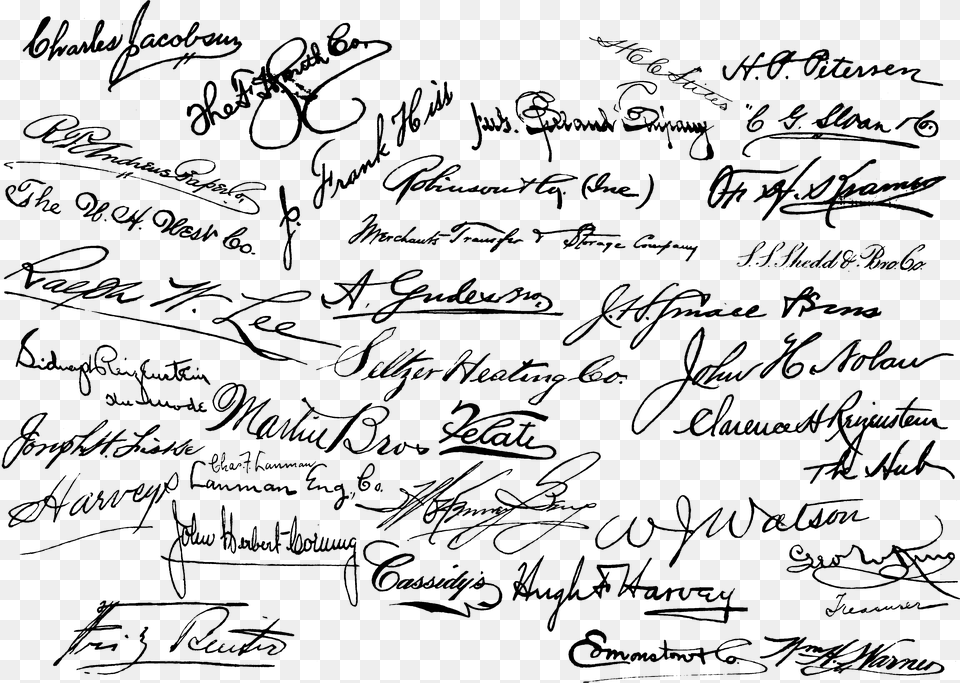 Charles Jacobsen
The F. H. Smith Co.
H. P. Petersen
Frank Hiss
Company
C. G. Sloan & Co.
R. P. Andrews Paper Co.
Robinson & Co. (Inc.)
The W. H. West Co.
J.
Merchants Transfer & Storage Company
S. S. Shedd & Bro. Co.
Ralph W. Lee
A. Gude
J. H. Grace
Seltzer Heating Co.
John H. Nolan
Sidney Reizenstein
Martin Bros
Velati
Clarence H Reizenstein
Joseph H.
The Hub
Chas. F. Lanman
Lanman Eng. Co.
Harveys
W J Watson
John Herbert Corning
Geo W King
Treasurer
Cassidy's
Hugh F Harvey
Fritz Reuter
Edmonston & Co.
Wm. H. Warner